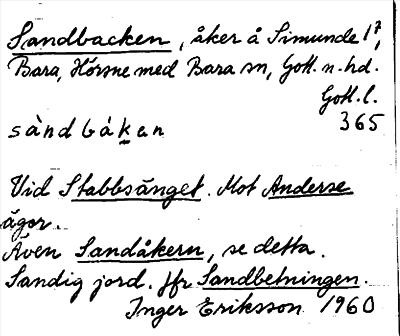 Sandbacken, åker å Simunde 1⅞,
Bara, Hörsne med Bara sn, Gotl. n. hd.
Gotl. l.
sàndbákan 365
Vid Stabbsänget. Mot Anderse
ägor.
Även Sandåkern, se detta.
Sandig jord. Jfr Sandbetningen.
Inger Eriksson 1960